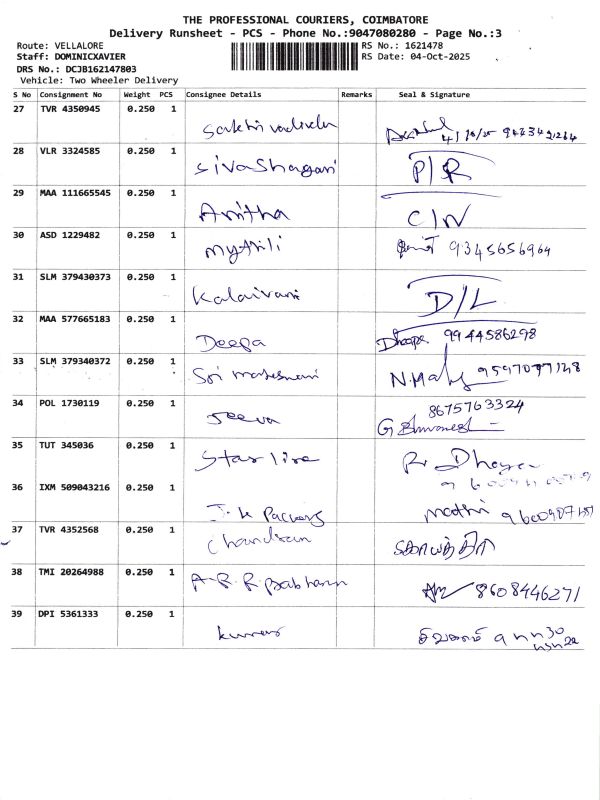 THE PROFESSIONAL COURIERS, COIMBATORE
Delivery Runsheet - PCS - Phone No.:9047080280 - Page No.:3
Route: VELLALORE RS No.: 1621478
Staff: DOMINICXAVIER RS Date: 04-Oct-2025
DRS No.: DCJB162147803
Vehicle: Two Wheeler Delivery
S No Consignment No Weight PCS Consignee Details Remarks Seal & Signature
27 TVR 4350945 0.250 1
Sakthi vadivelu
28 VLR 3324585 0.250 1
Sivashagari P/R
29 MAA 111665545 0.250 1
Anitha C/N
30 ASD 1229482 0.250 1
Mythili 9345656964
31 SLM 379430373 0.250 1
Kalaivani D/L
32 MAA 577665183 0.250 1
Deepa Dheepa 9944586298
33 SLM 379340372 0.250 1
Sri maheswari
34 POL 1730119 0.250 1
Jeeva 8675763324
35 TUT 345036 0.250 1
Star line
36 IXM 509043216 0.250 1
mathi
37 TVR 4352568 0.250 1
Chandran
38 TMI 20264988 0.250 1
8608446271
39 DPI 5361333 0.250 1
kumar